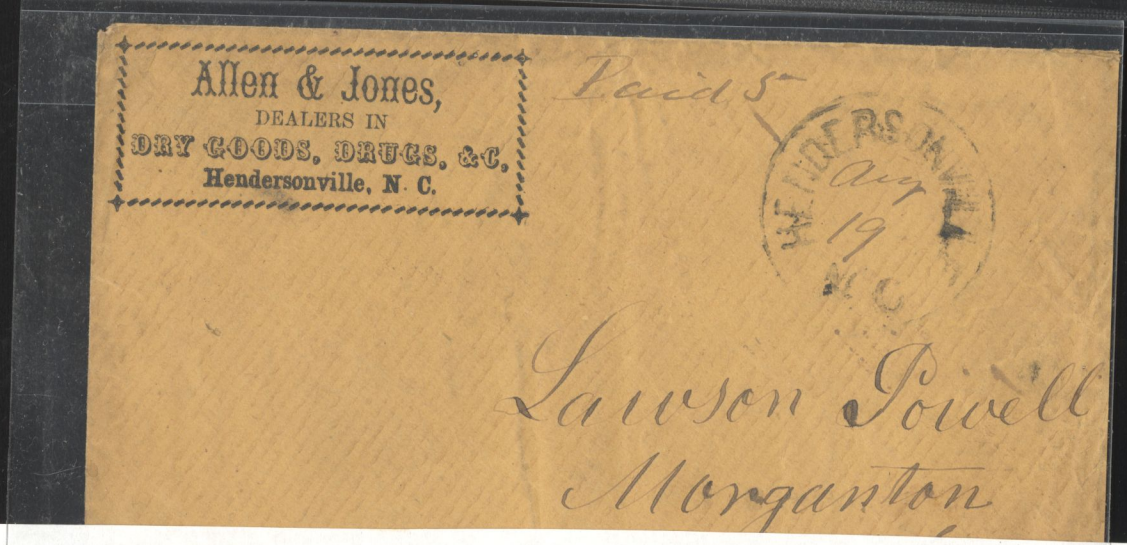 Allen & Jones,
DEALERS IN
DRY GOODS, DRUGS, &C,
Hendersonville, N. C.
Paid 5
HENDERSONVILLE
Aug
19
N.C.
Lawson Powell
Morganton